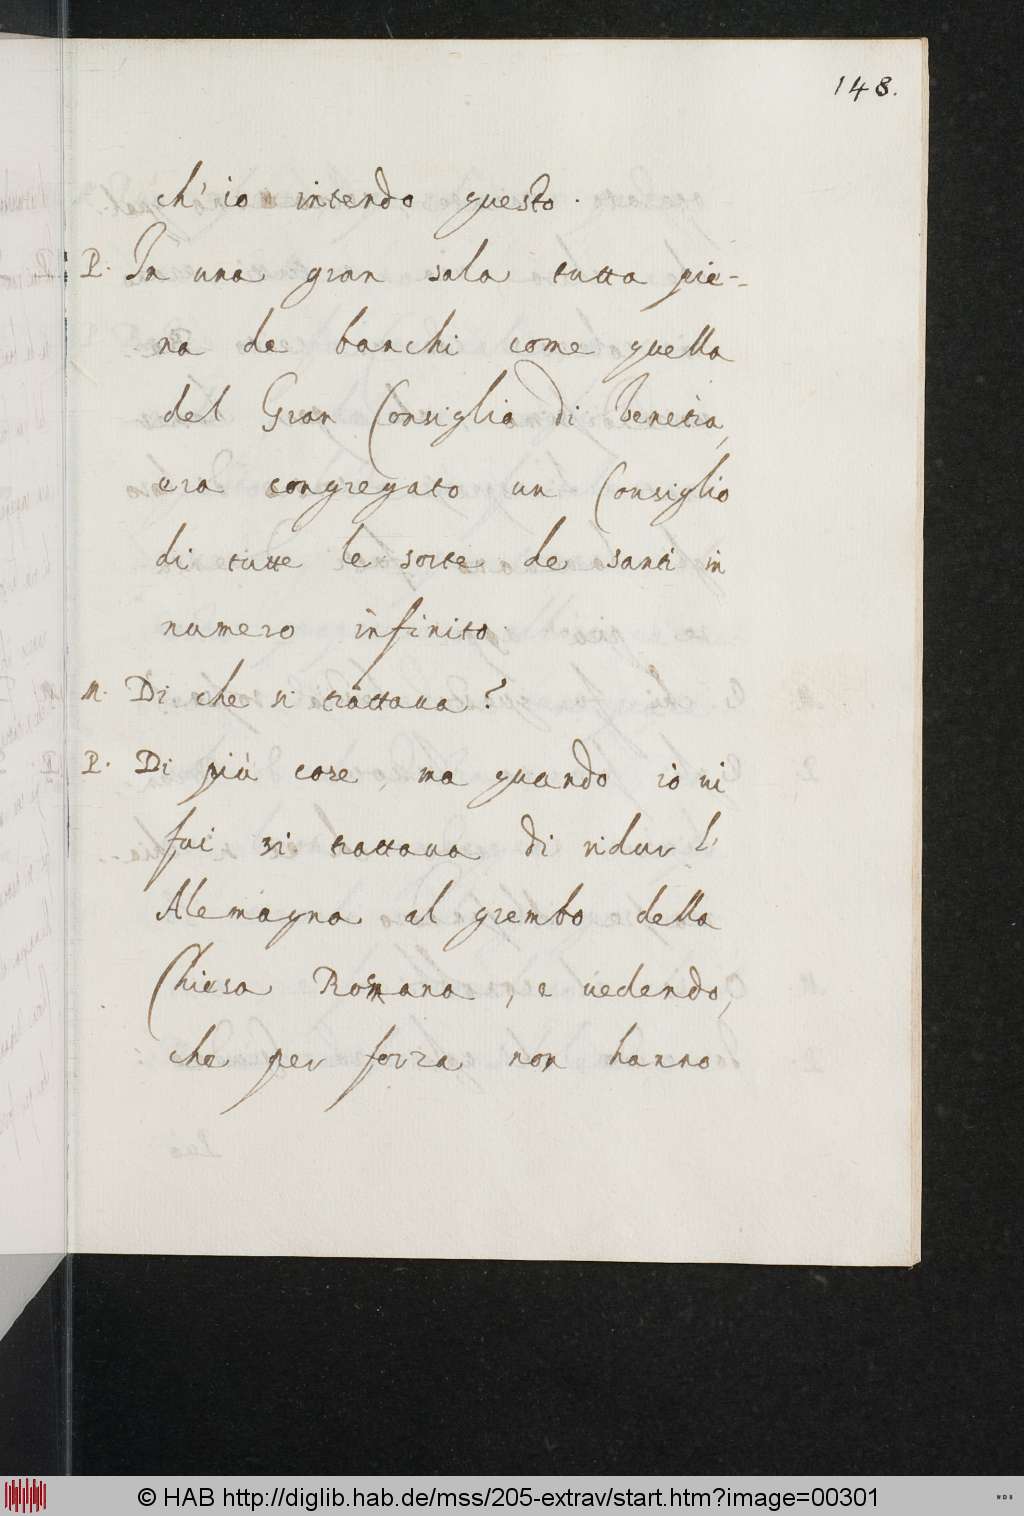 148.
ch'io intendo questo.
P. In una gran sala tutta pie-
na de banchi come quella
del Gran Consiglio di Venetia,
era congregato un Consiglio
di tutte le sorte de santi in
numero infinito.
M. Di che si trattaua?
P. Di più cose, ma quando io ui
fui si trattaua di ridur l'
Alemagna al grembo della
Chiesa Romana, e uedendo,
che per forza non hanno
© HAB http://diglib.hab.de/mss/205-extrav/start.htm?image=00301